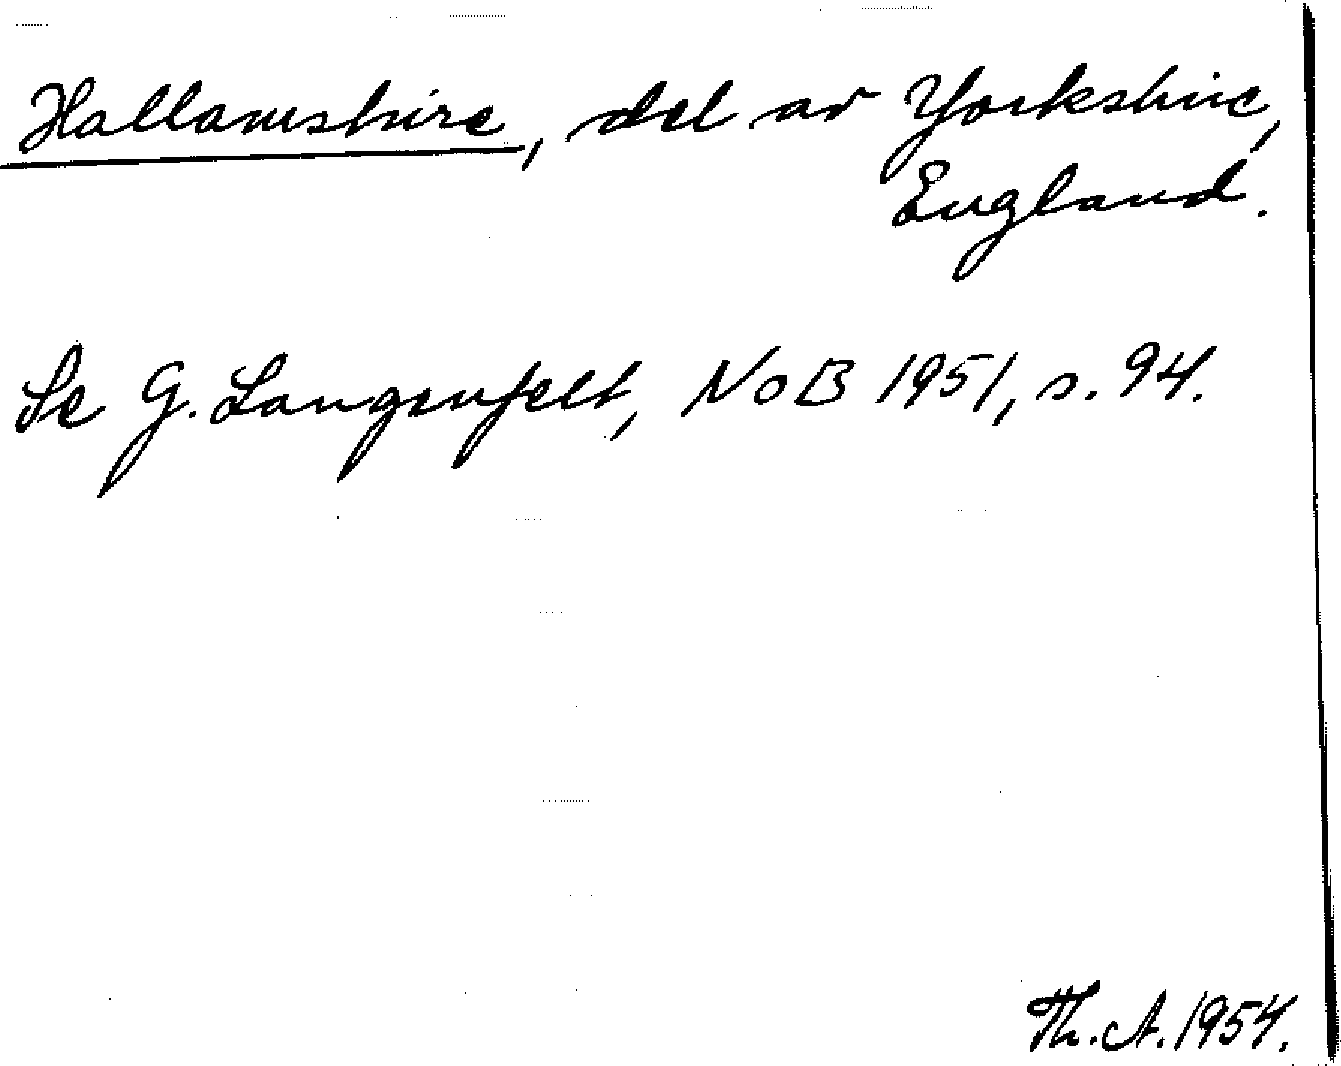 Hallamshire, del av Yorkshire,
England.
Se G. Langenfelt, NoB 1951, s. 94.
Th. A. 1954.